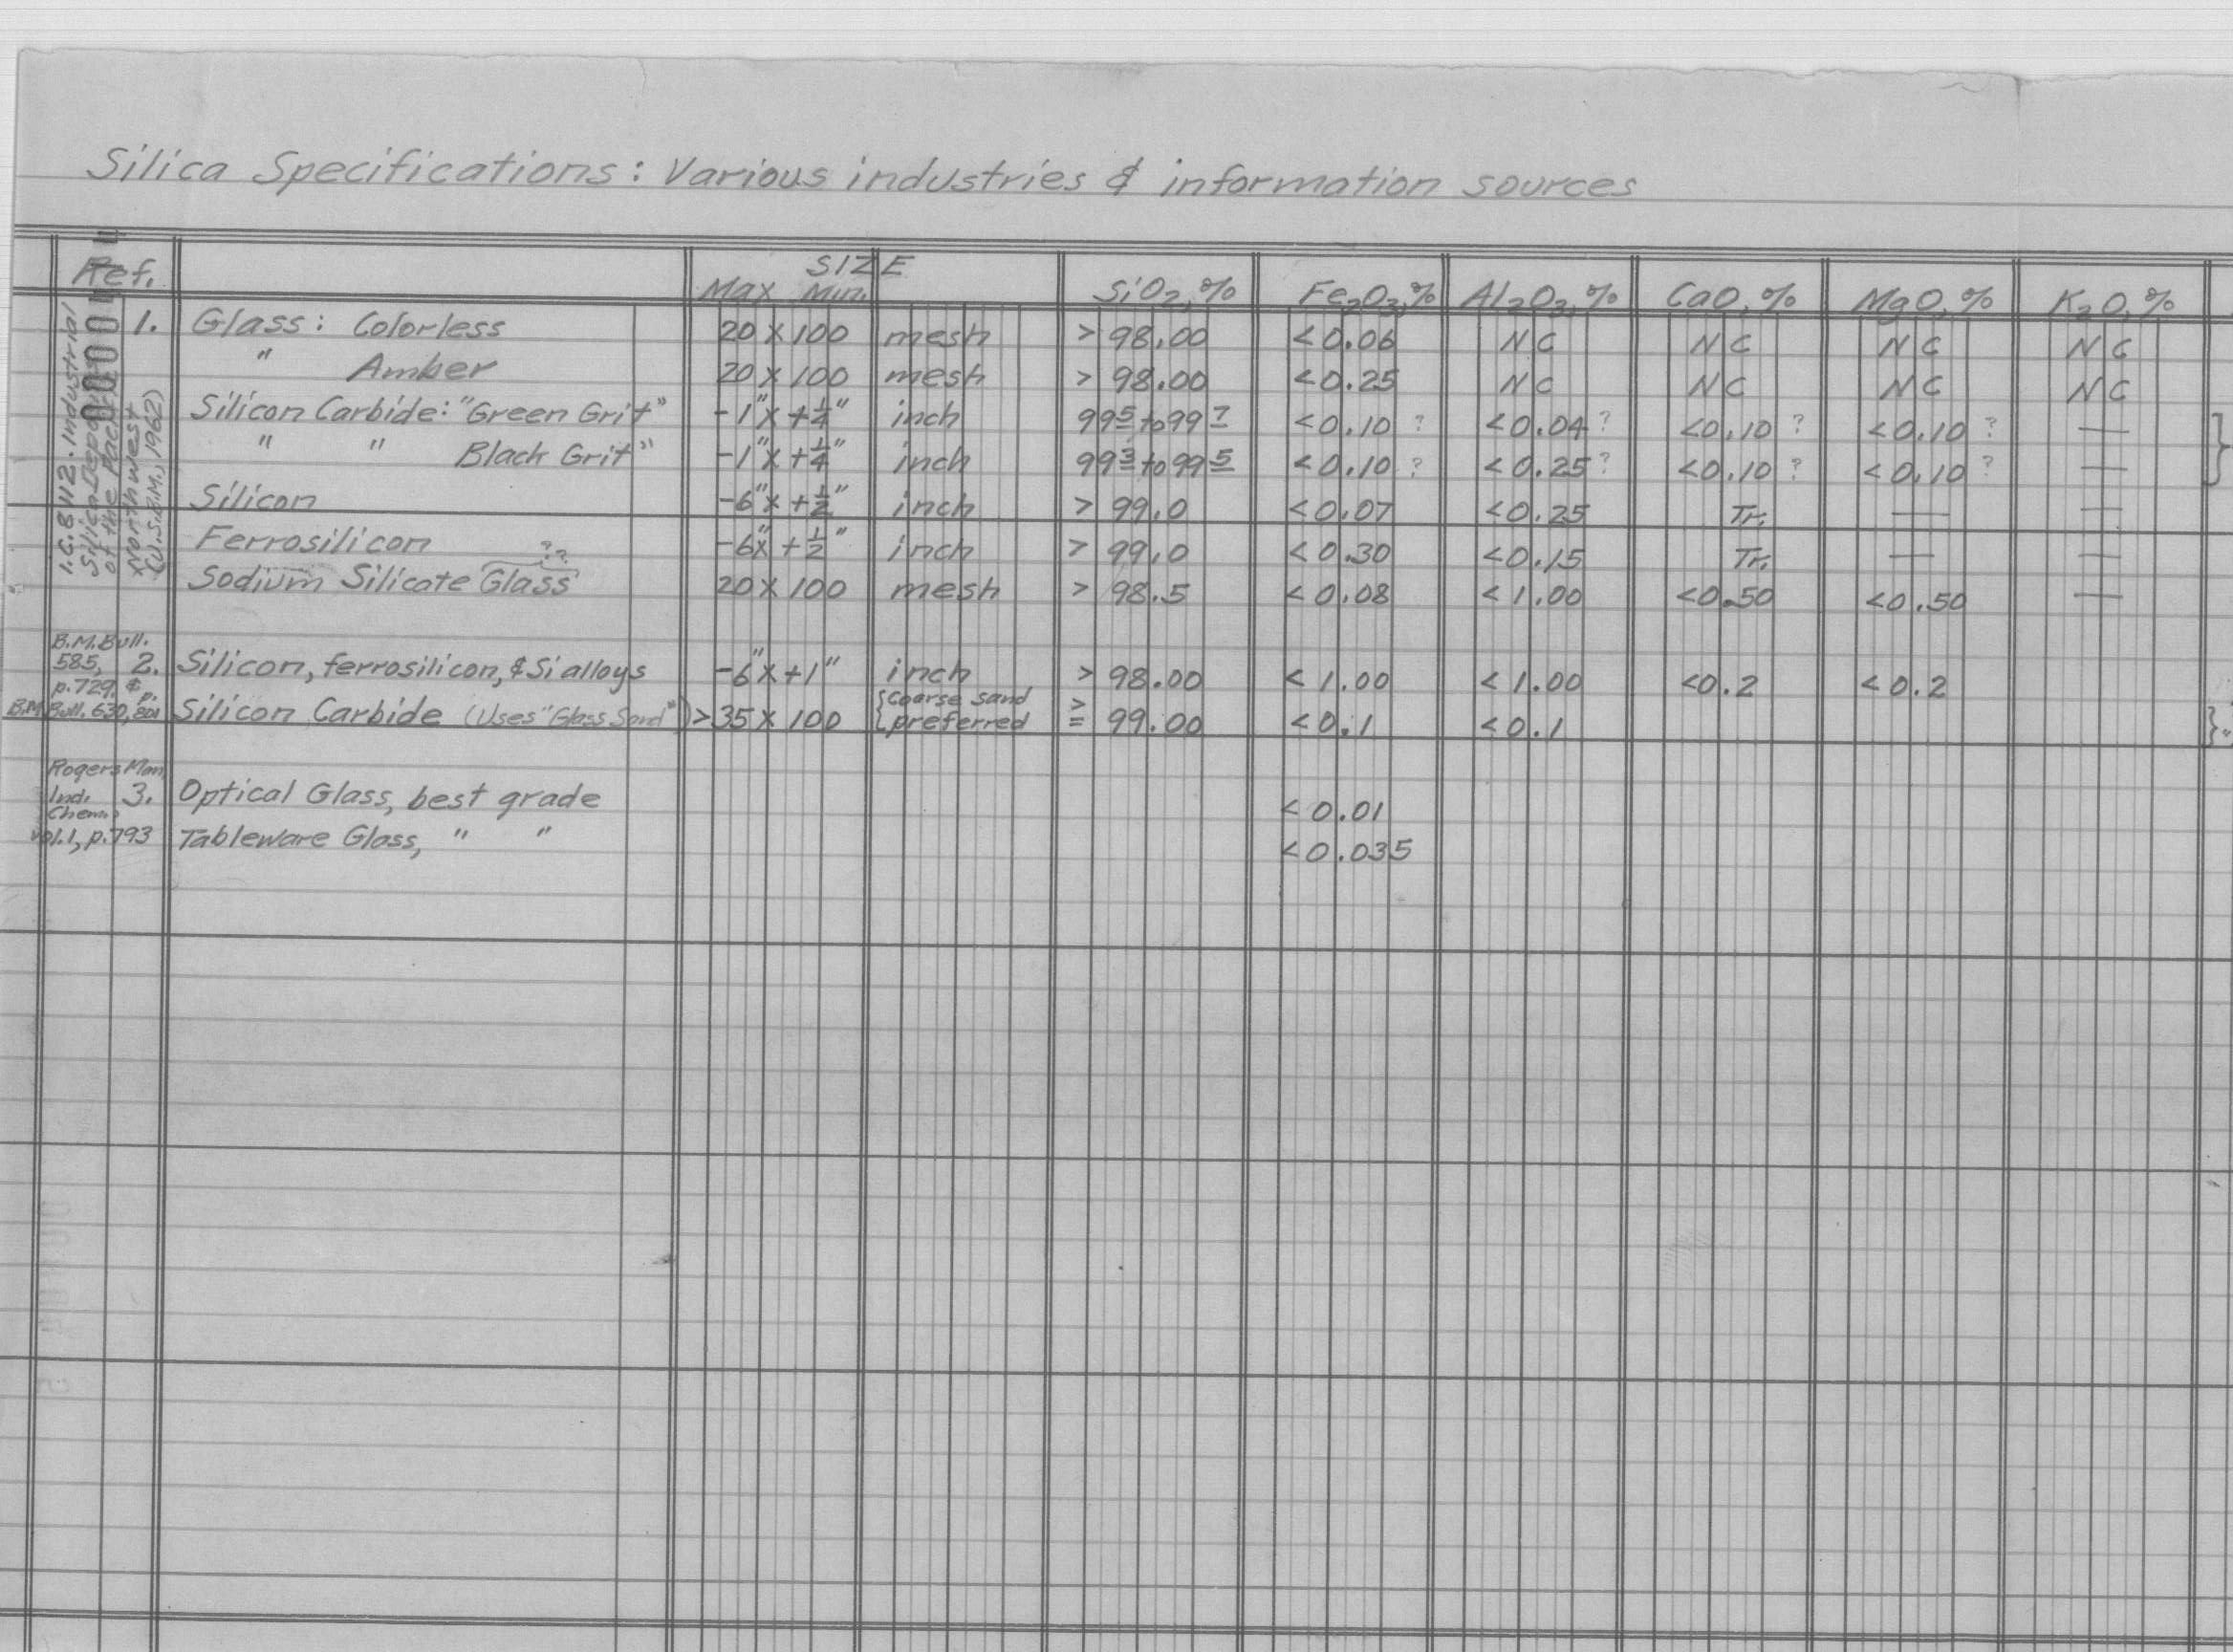 Silica Specifications: Various industries & information sources
Ref. SIZE
Max Min. SiO2,% Fe2O3,% Al2O3,% CaO,% MgO,% K2O,%
I.C. 8112. Industrial
Silica Deposits
of the Pacific
Northwest
(U.S.B.M., 1962)
1. Glass: Colorless 20 x 100 mesh > 98.00 < 0.06 NC NC NC NC
" Amber 20 x 100 mesh > 98.00 < 0.25 NC NC NC NC
Silicon Carbide: "Green Grit" -1" x +1/4" inch 99.5 to 99.7 < 0.10 ? < 0.04 ? < 0.10 ? < 0.10 ? — }
" " Black Grit" -1" x +1/4" inch 99.3 to 99.5 < 0.10 ? < 0.25 ? < 0.10 ? < 0.10 ? —
Silicon -6" x +1/2" inch > 99.0 < 0.07 < 0.25 Tr. — —
Ferrosilicon -6" x +1/2" inch > 99.0 < 0.30 < 0.15 Tr. — —
Sodium Silicate Glass ?? 20 x 100 mesh > 98.5 < 0.08 < 1.00 < 0.50 < 0.50 —
B.M. Bull.
585, 2. Silicon, ferrosilicon, & Si alloys -6" x +1" inch > 98.00 < 1.00 < 1.00 < 0.2 < 0.2
p. 729, & p.
B.M. Bull. 630, 801 Silicon Carbide (Uses "Glass Sand") > 35 x 100 {coarse sand preferred ≥ 99.00 < 0.1 < 0.1 }"
Rogers Man.
Ind. 3. Optical Glass, best grade < 0.01
Chem.
vol. 1, p. 793 Tableware Glass, " " < 0.035